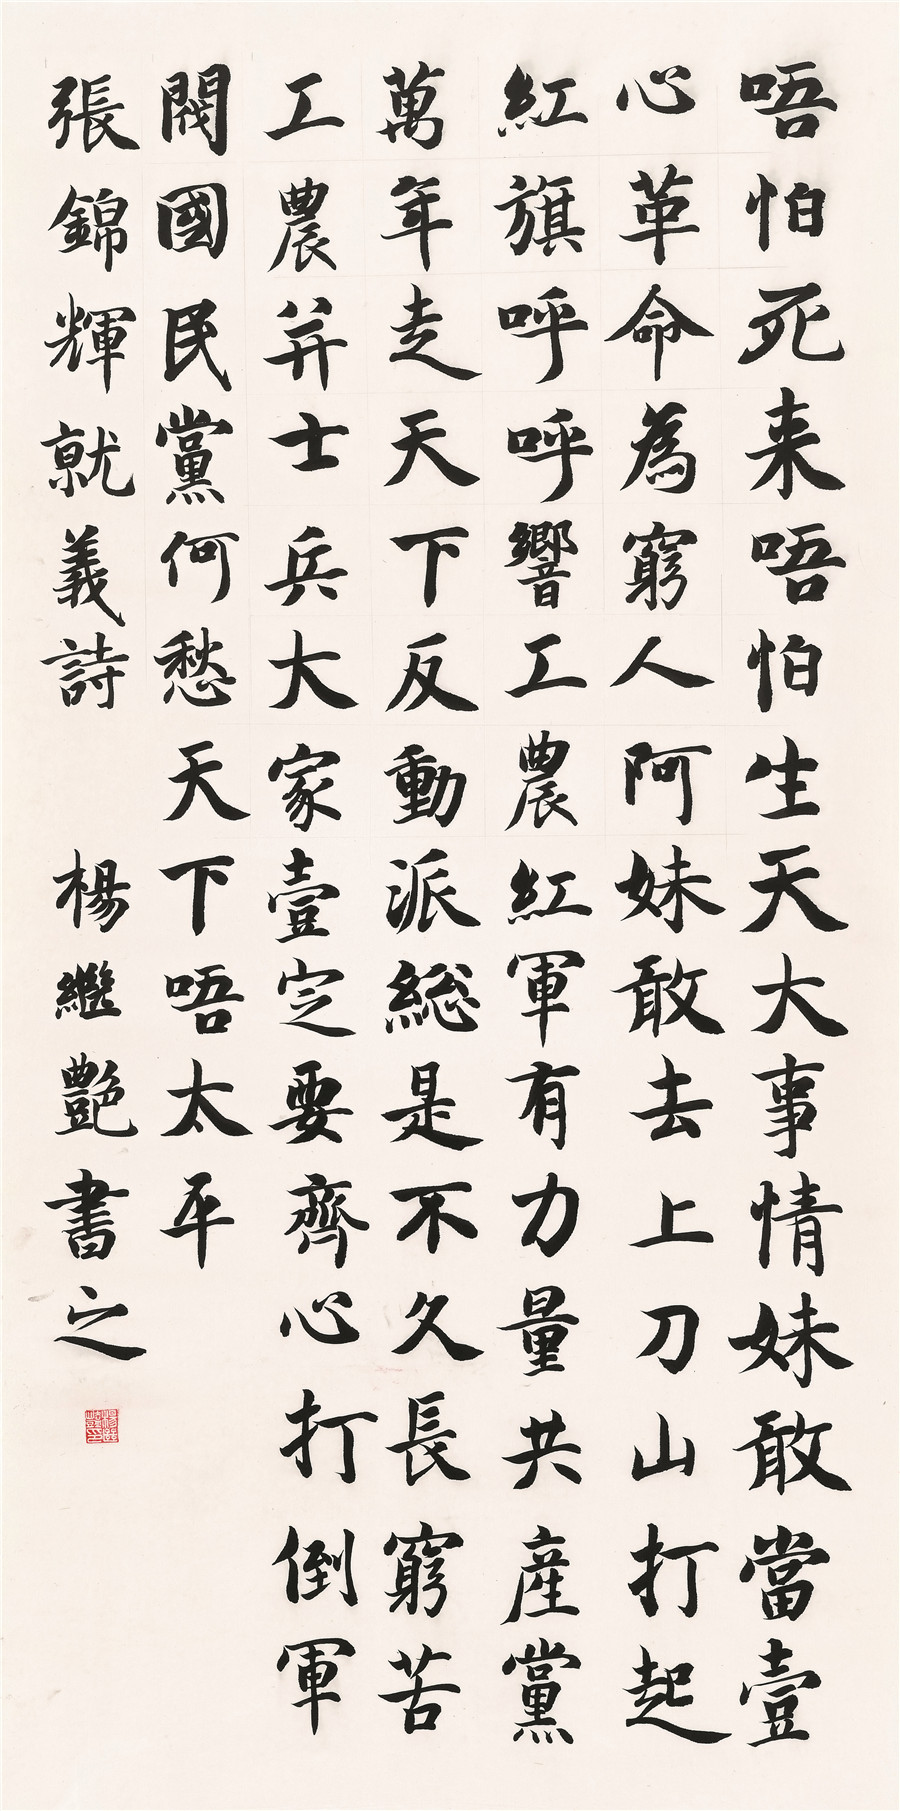 唔怕死来唔怕生天大事情妹敢當壹
心革命為窮人阿妹敢去上刀山打起
紅旗呼呼響工農紅軍有力量共產黨
萬年走天下反動派総是不久長窮苦
工農并士兵大家壹定要齊心打倒軍
閥國民黨何愁天下唔太平
張錦輝就義詩 楊繼艷書之